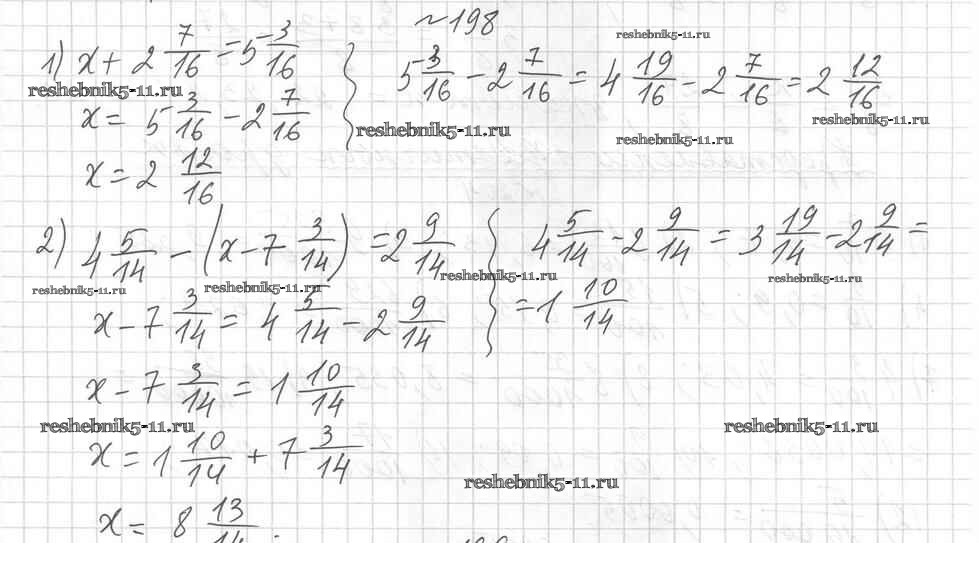 №198
1) x + 2 7/16 = 5 3/16
5 3/16 - 2 7/16 = 4 19/16 - 2 7/16 = 2 12/16
reshebnik5-11.ru
reshebnik5-11.ru
reshebnik5-11.ru
x = 5 3/16 - 2 7/16
reshebnik5-11.ru
reshebnik5-11.ru
x = 2 12/16
2) 4 5/14 - (x - 7 3/14) = 2 9/14
4 5/14 - 2 9/14 = 3 19/14 - 2 9/14 =
reshebnik5-11.ru
reshebnik5-11.ru
reshebnik5-11.ru
reshebnik5-11.ru
x - 7 3/14 = 4 5/14 - 2 9/14
= 1 10/14
x - 7 3/14 = 1 10/14
reshebnik5-11.ru
reshebnik5-11.ru
x = 1 10/14 + 7 3/14
reshebnik5-11.ru
x = 8 13/14